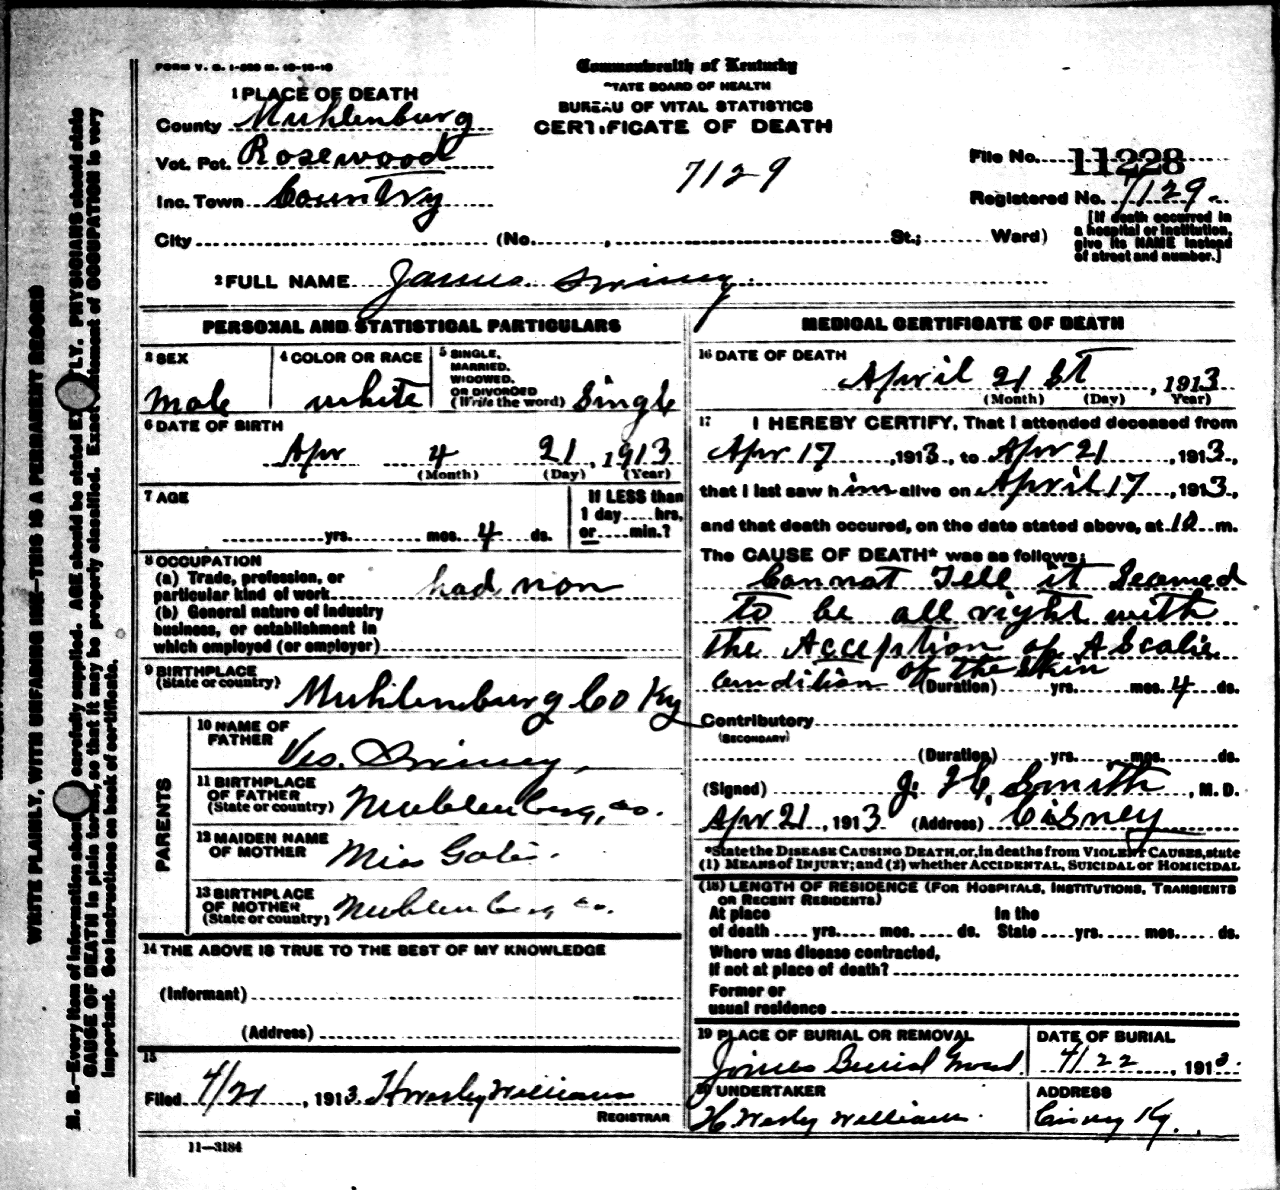 FORM V. S. 1-
Commonwealth of Kentucky
STATE BOARD OF HEALTH
BUREAU OF VITAL STATISTICS
CERTIFICATE OF DEATH
1 PLACE OF DEATH
County Muhlenburg
Vot. Pct. Rosewood
Inc. Town Country
City (No. , St.; Ward)
7129
File No. 11228
Registered No. 7129
[If death occurred in a hospital or institution, give its NAME instead of street and number.]
2 FULL NAME James
PERSONAL AND STATISTICAL PARTICULARS
3 SEX
Male
4 COLOR OR RACE
white
5 SINGLE, MARRIED, WIDOWED, OR DIVORCED (Write the word) Single
6 DATE OF BIRTH
Apr 4 21, 1913
(Month) (Day) (Year)
7 AGE
yrs. mos. 4 ds.
If LESS than 1 day hrs. or min.?
8 OCCUPATION
(a) Trade, profession, or particular kind of work had non
(b) General nature of industry business, or establishment in which employed (or employer)
9 BIRTHPLACE
(State or country) Muhlenburg Co Ky
PARENTS
10 NAME OF FATHER Ves.
11 BIRTHPLACE OF FATHER (State or country) Muhlenberg, co.
12 MAIDEN NAME OF MOTHER Miss
13 BIRTHPLACE OF MOTHER (State or country) Muhlenberg co.
14 THE ABOVE IS TRUE TO THE BEST OF MY KNOWLEDGE
(Informant)
(Address)
15
Filed 4/21, 1913. H Wesley Williams
REGISTRAR
11-3184
MEDICAL CERTIFICATE OF DEATH
16 DATE OF DEATH
April 21 st, 1913
(Month) (Day) (Year)
17 I HEREBY CERTIFY, That I attended deceased from
Apr 17, 1913, to Apr 21, 1913,
that I last saw him alive on April 17, 1913,
and that death occured, on the date stated above, at 12 m.
The CAUSE OF DEATH* was as follows:
Cannot Tell it Seamed
to be all right with
the Acception of A Scalie
condition of the Skin
(Duration) yrs. mos. 4 ds.
Contributory
(SECONDARY)
(Duration) yrs. mos. ds.
(Signed) J. H. Smith, M. D.
Apr 21, 1913 (Address) Cisney
*State the DISEASE CAUSING DEATH, or, in deaths from VIOLENT CAUSES, state
(1) MEANS OF INJURY; and (2) whether ACCIDENTAL, SUICIDAL or HOMICIDAL
(18) LENGTH OF RESIDENCE (FOR HOSPITALS, INSTITUTIONS, TRANSIENTS
OR RECENT RESIDENTS)
At place of death yrs. mos. ds. In the State yrs. mos. ds.
Where was disease contracted,
If not at place of death?
Former or
usual residence
19 PLACE OF BURIAL OR REMOVAL
Burial
DATE OF BURIAL
4/22, 1913.
20 UNDERTAKER
H Wesly William
ADDRESS
Cisney Ky.
WRITE PLAINLY, WITH UNFADING INK—THIS IS A PERMANENT RECORD
N. B.—Every item of information should be carefully supplied. AGE should be stated EXACTLY. PHYSICIANS should state
CAUSE OF DEATH in plain terms, so that it may be properly classified. Exact statement of OCCUPATION is very
important. See instructions on back of certificate.